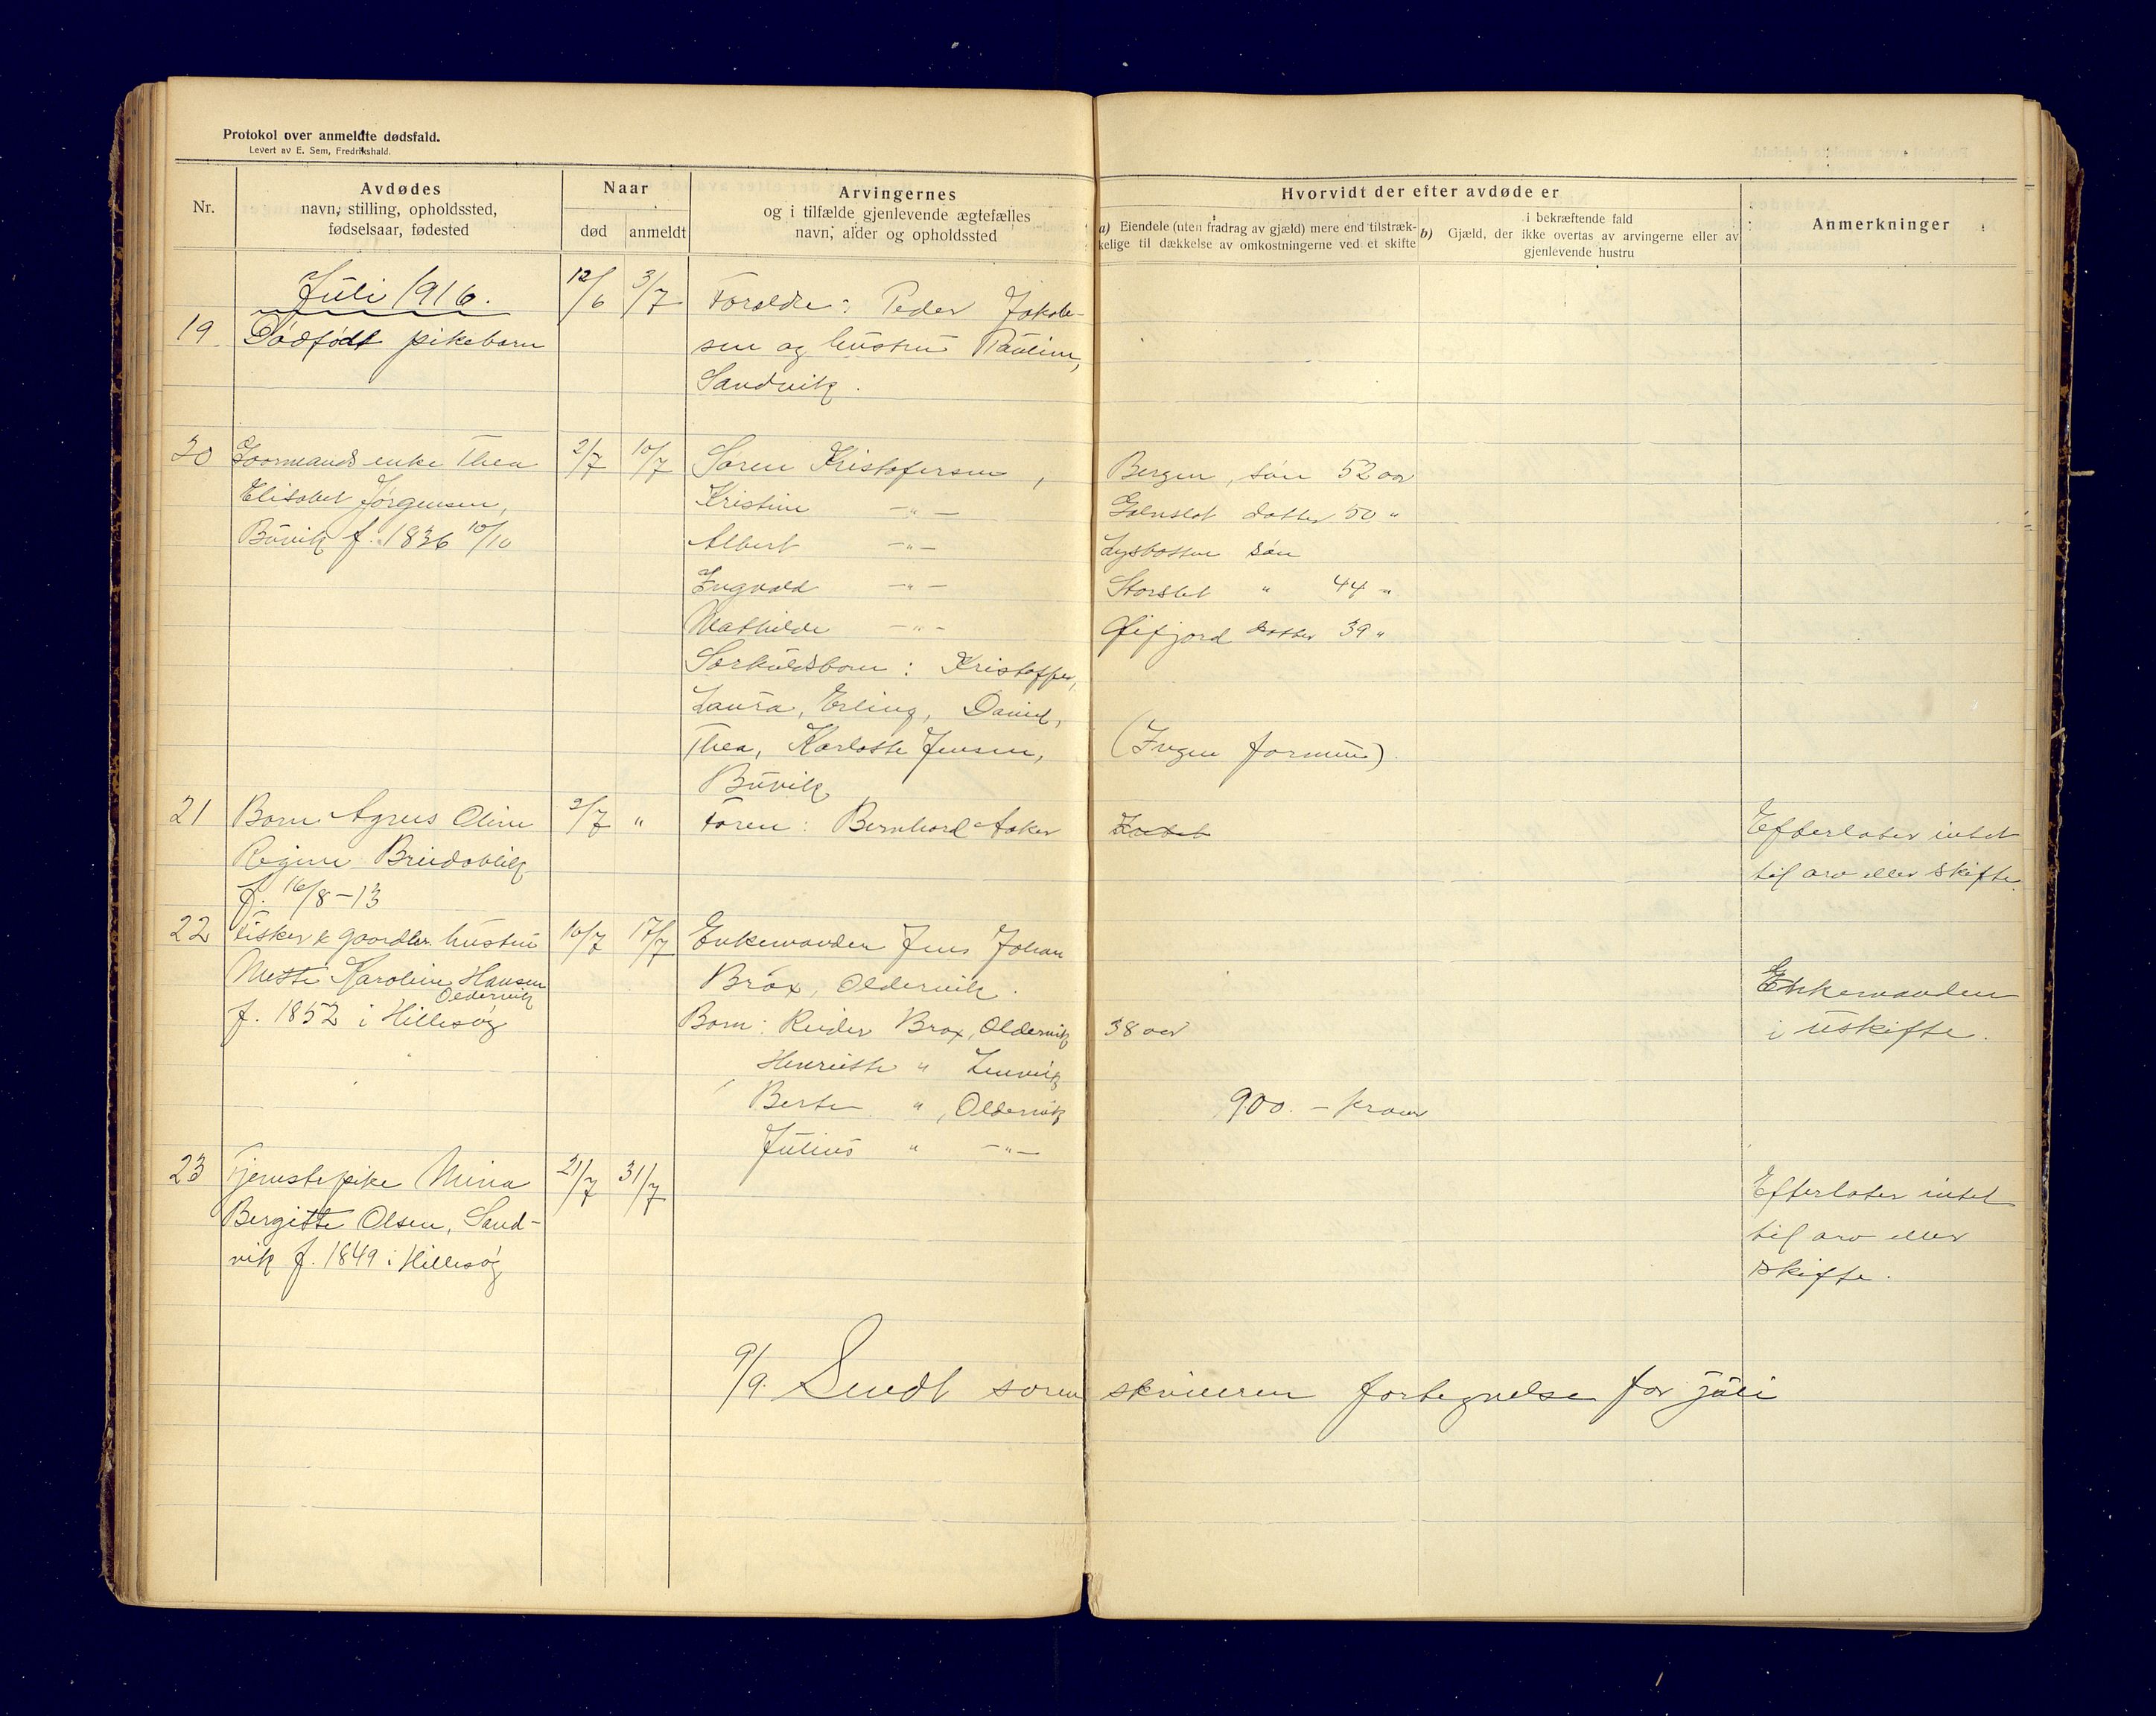 Protokol over anmeldte dødsfald.
Levert av E. Sem, Fredrikshald.
Nr.
Avdødes
navn, stilling, opholdssted,
fødselsaar, fødested
Naar
død
anmeldt
Arvingernes
og i tilfælde gjenlevende ægtefælles
navn, alder og opholdssted
Hvorvidt der efter avdøde er
a) Eiendele (uten fradrag av gjæld) mere end tilstræk-
kelige til dækkelse av omkostningerne ved et skifte
i bekræftende fald
b) Gjæld, der ikke overtas av arvingerne eller av
gjenlevende hustru
Anmerkninger
Juli 1916.
19 Dødfødt pikebarn
12/6 3/7
Foreldre: Peder Jakob-
sen og hustru Pauline,
Sandvik.
20 enke Thea
Elisabet Jørgensen,
Buvik f. 1836 10/10
2/7 10/7
Søren Kristofersen, Bergen, søn 52 aar
Kristine —"— datter 50 "
Albert —"— Lysbotten søn
Ingvald —"— Storslet " 44 "
Mathilde —"— Øifjord datter 39 "
Særkuldsbarn: Kristoffer,
Laura, Erling, Daniel,
Thea, Karlotte Jensen, (Ingen formue).
Buvik
21 Barn Agnes Oline
Regine Breidablik
f. 16/8-13
9/7 "
Faren: Bernhard Aaker
Intet
Efterlater intet
til arv eller skifte.
22 Fisker & gaardbr. hustru
Mette Karoline Hansen
Oldervik
f. 1852 i Hillesøy
10/7 17/7
Enkemanden Jens Johan
Brox, Oldervik.
Barn: Reider Brox, Oldervik 38 aar
Henriette " Lenvik
Berte " , Oldervik
Julius " —"—
900.- kroner
Enkemanden
i uskifte.
23 Tjenestepike Mina
Bergitte Olsen, Sand-
vik f. 1849 i Hillesøy
21/7 31/7
Efterlater intet
til arv eller
skifte.
9/9. Sendt sorenskriveren fortegnelse for juli